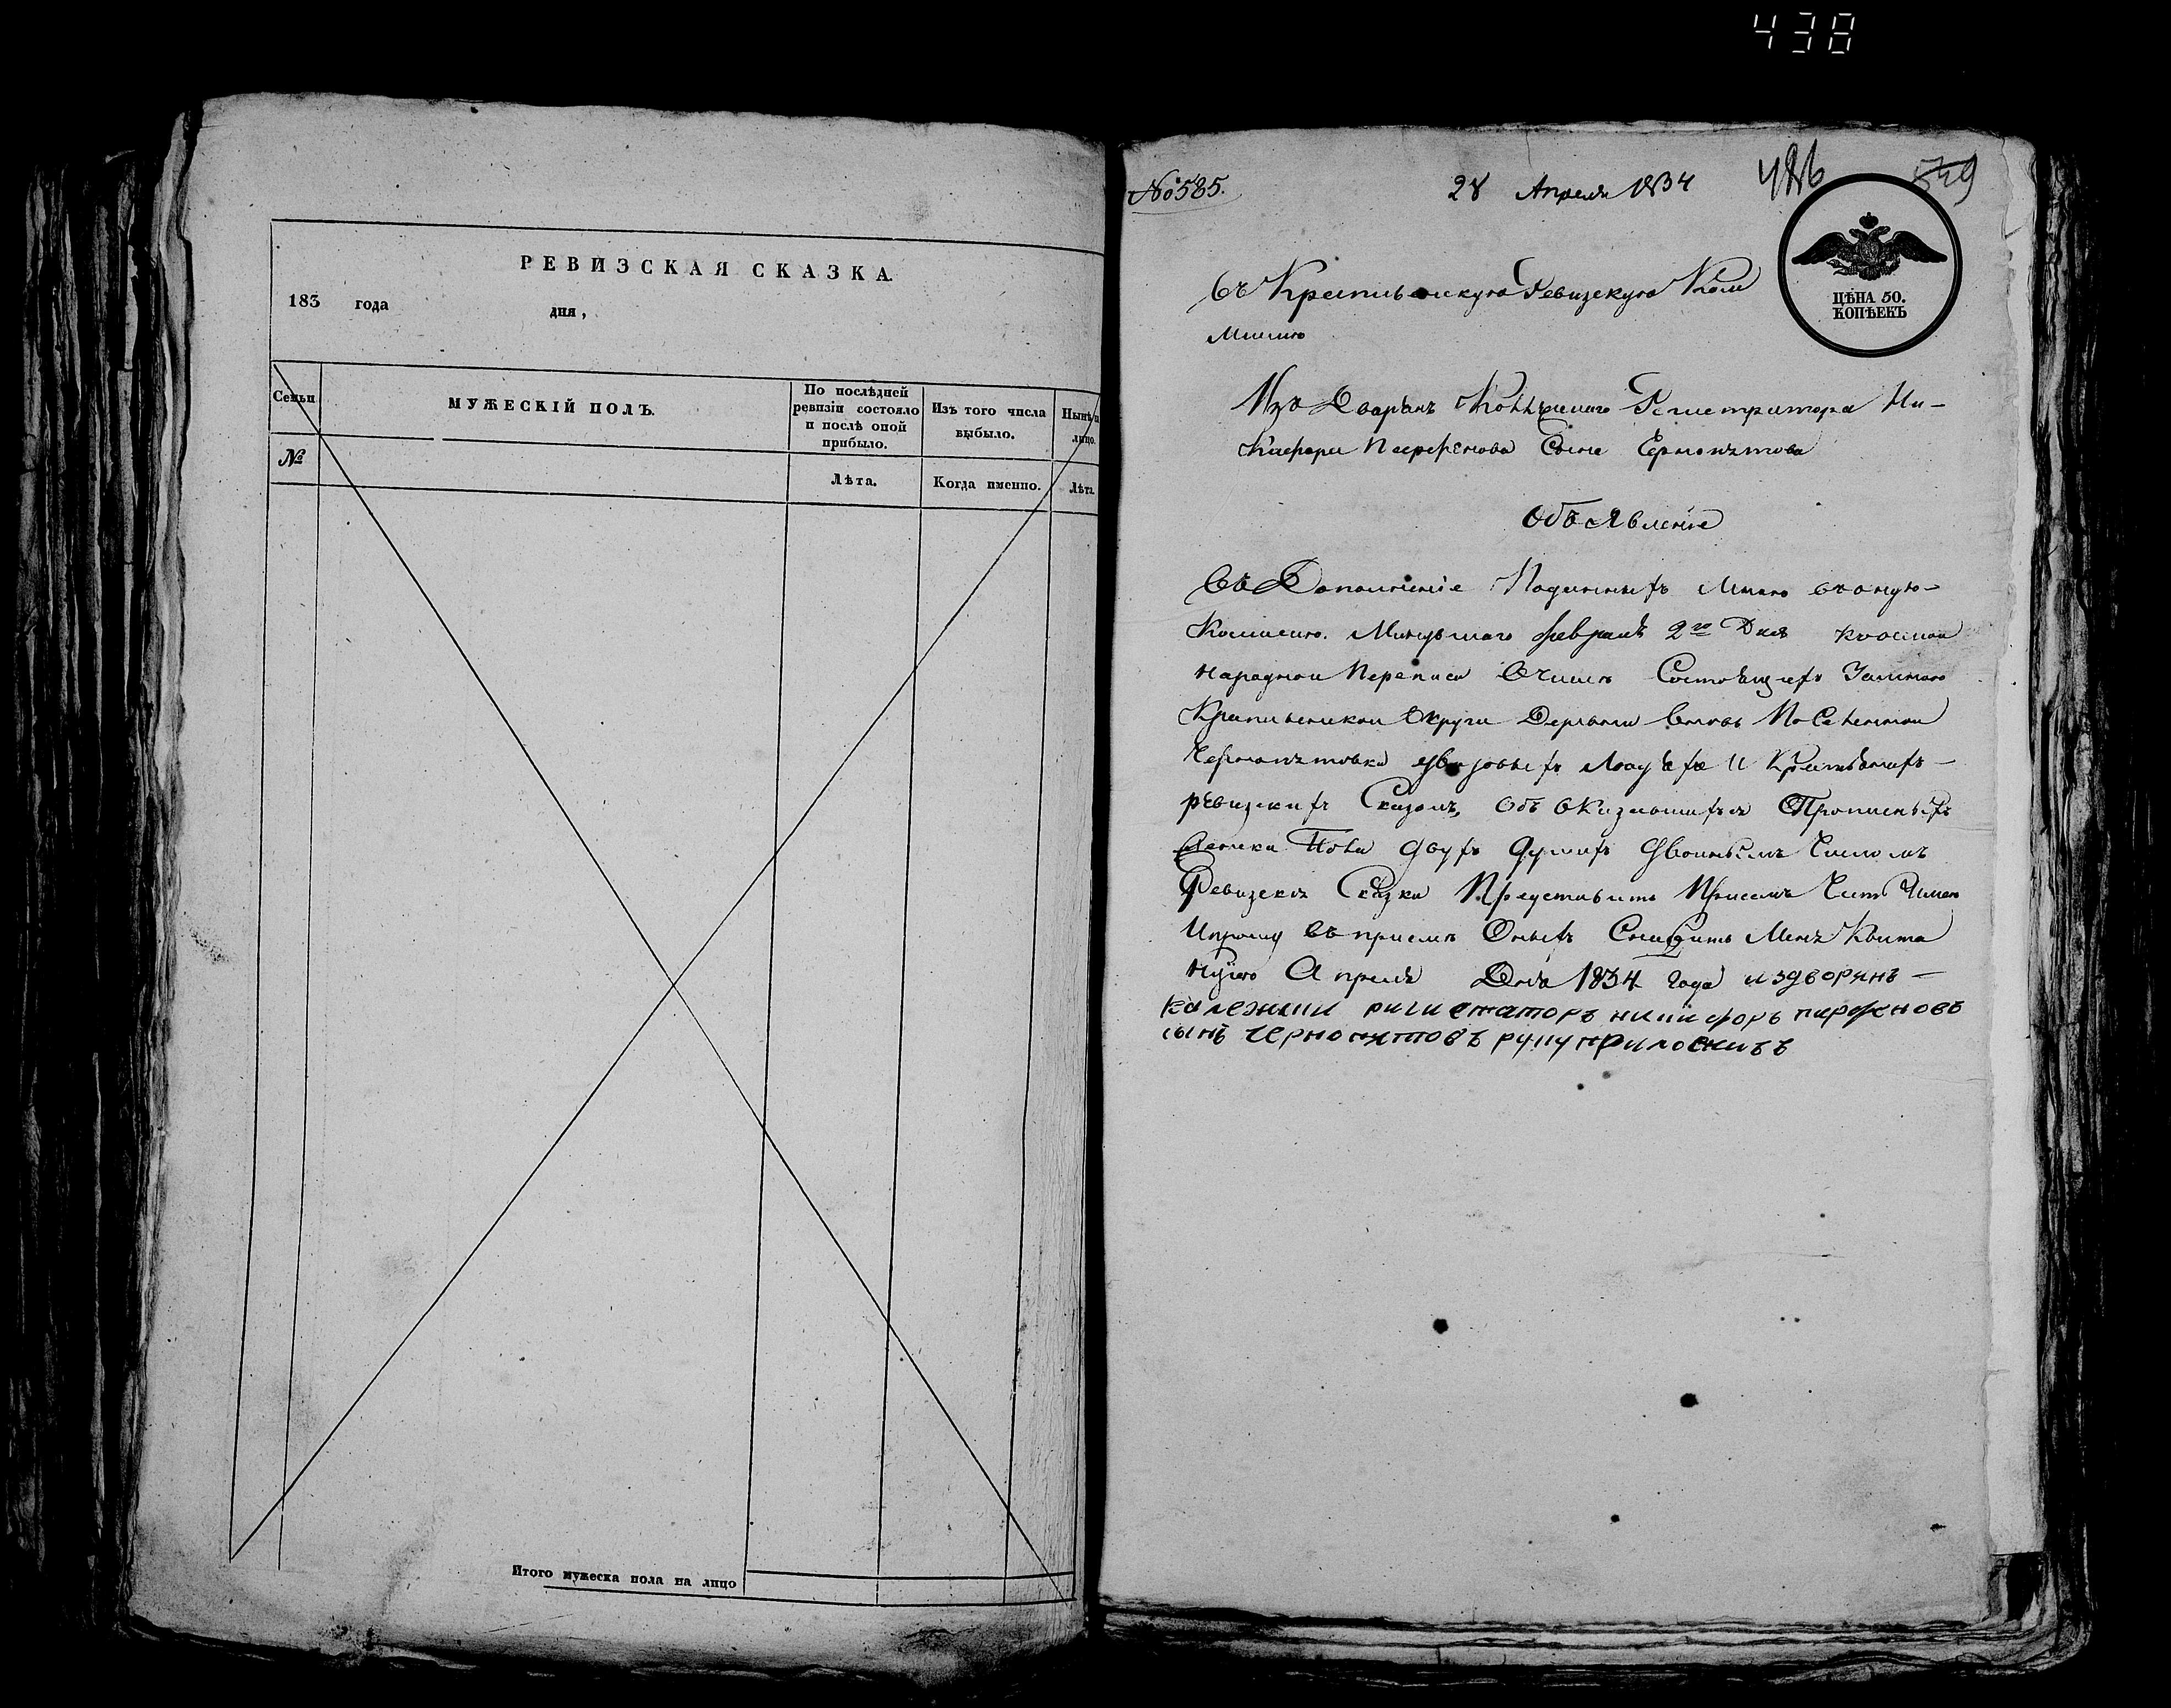 438
РЕВИЗСКАЯ СКАЗКА
183 года дня,
Семьи
МУЖЕСКІЙ ПОЛЪ.
По послѣдней ревизіи состояло и послѣ оной прибыло.
Изъ того числа выбыло.
Нынѣ на лицо.
№
Лѣта.
Когда именно.
Лѣта.
Итого мужеска пола на лицо
№ 585.
28 Апреля 1834
486
549
ЦѢНА 50.
КОПѢЕКЪ
въ Крапивенскую Ревизскую Ком
мисию
Изъ Дворянъ Коллежскаго Регистратора Ни-
кифора Парфенова Сына Чернопятова
Объявление
Въ Дополнение Поданныхъ Мною въ оную-
Комисию. Минувшаго февраля 2го Дня
народной Переписи Состоящихъ Замною
Крапивенской Округи Деревни Вновь
Чернопятовки дворовыхъ Людяхъ И Крестьянахъ-
ревизскихъ Сказокъ, Объ Оказавшихся Прописныхъ
Женска Пола двухъ душахъ
Ревизския Сказки Представить Присемъ Честь Имею
Ипрошу въ приемѣ Оныхъ Снабдить Меня Квита
нцыею Апреля Дня 1834 года издворянъ-
калежкии ригистаторъ никифоръ парфеновъ
сынъ чернопятовъ руку приложилъ